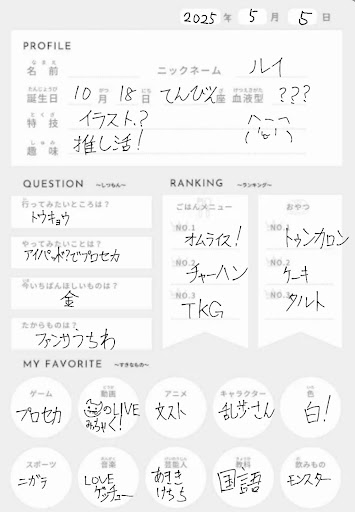 2025年 5月 5日
PROFILE
なまえ
名前 ニックネーム ルイ
たんじょうび がつ にち ざ けつえきがた
誕生日 10月 18日 てんびん座 血液型 ???
とくぎ
特技 イラスト?
しゅみ
趣味 推し活!
QUESTION ~しつもん~
行ってみたいところは?
トウキョウ
やってみたいことは?
アイパッド?でプロセカ
今いちばんほしいものは?
金
たからものは?
ファンサうちわ
RANKING ~ランキング~
ごはんメニュー おやつ
NO.1 オムライス! NO.1 トゥンカロン
NO.2 チャーハン NO.2 ケーキ
NO.3 TKG NO.3 タルト
MY FAVORITE ~すきなもの~
ゲーム 動画 アニメ キャラクター 色
プロセカ のLIVE みぢゃく! 文スト 乱歩さん 白!
スポーツ 音楽 芸能人 教科 飲みもの
ニガラ LOVE ゲッチュー あさき けちら 国語 モンスター